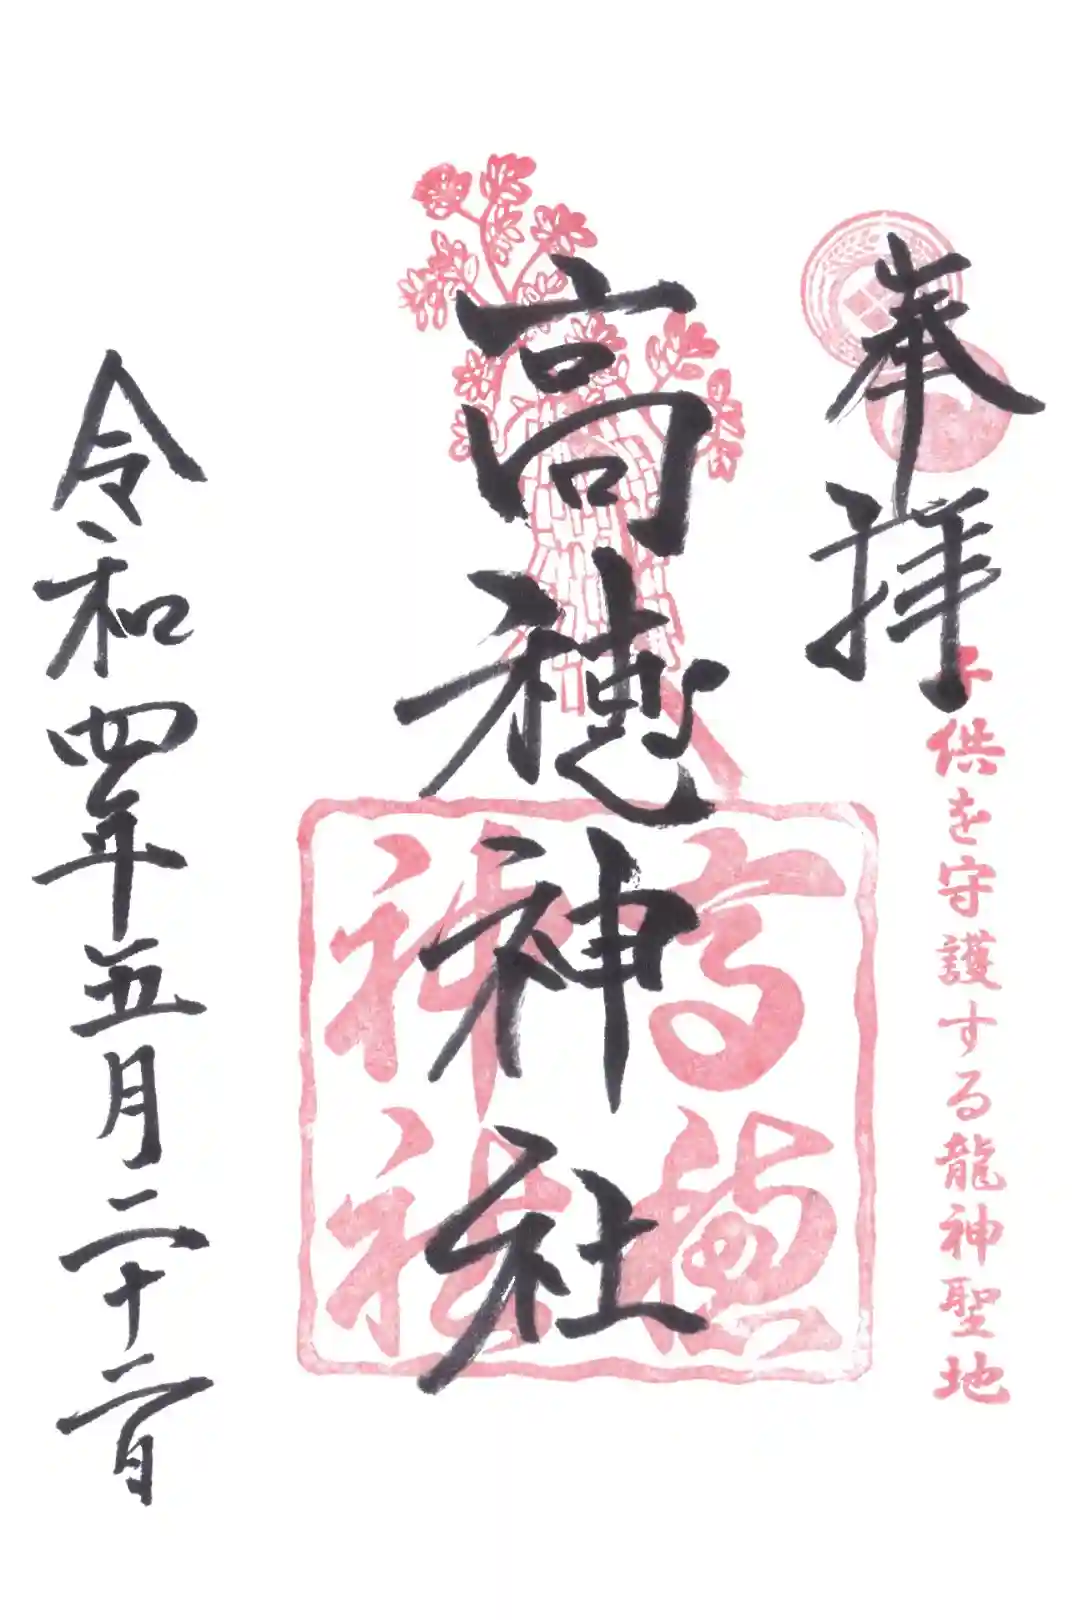 奉拝
子供を守護する龍神聖地
高穂神社
高穂神社
令和四年五月二十二日